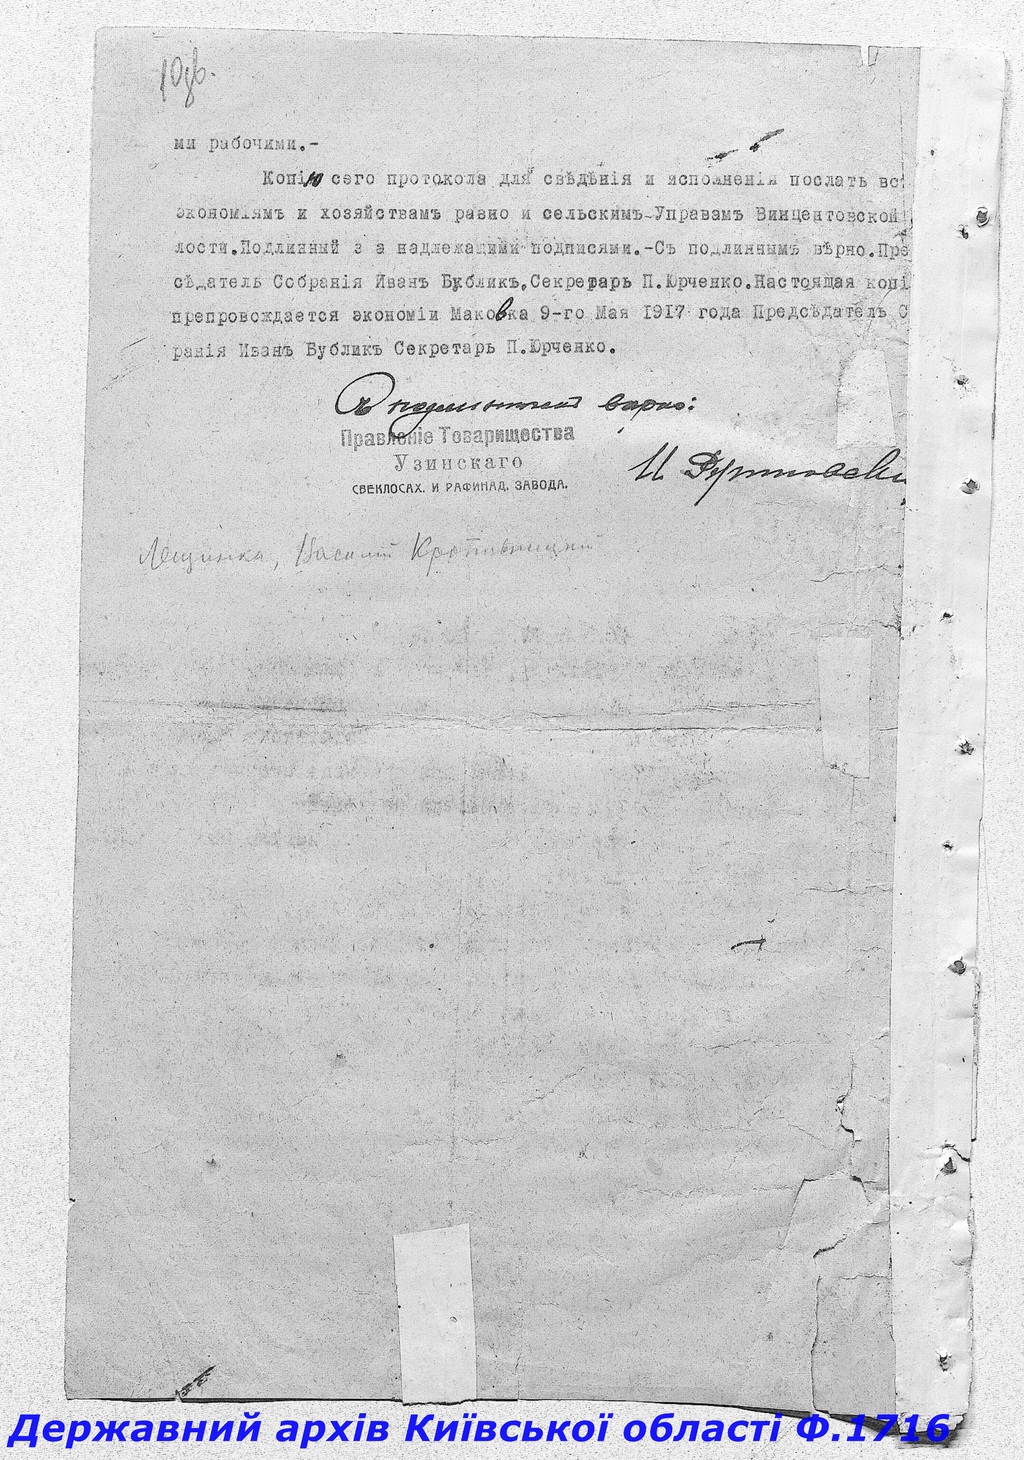 10об.
ми рабочими.-
Копію сего протокола для свѣдѣнія и исполненія послать вс
экономіямъ и хозяйствамъ равно и сельскимъ-Управамъ Винцентовской
лости.Подлинный з а надлежащими подписями.-Съ подлиннымъ вѣрно.Пре
сѣдатель Собранія Иванъ Бубликъ,Секретарь П.Юрченко.Настоящая копі
препровождается экономіи Маковка 9-го Мая 1917 года Предсѣдатель С
ранія Иванъ Бубликъ Секретарь П.Юрченко.
Съ подлинной варно:
Правленіе Товарищества
Узинскаго
СВЕКЛОСАХ. И РАФИНАД. ЗАВОДА.
И
Лещинка, Василій Кропивницкий
Державний архів Київської області Ф.1716